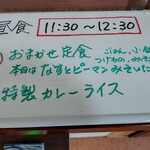 昼食 11:30～12:30
おまかせ定食 ごはん、小
つけもの、みそ
本日は なすとピーマンみそいた
特製カレーライス